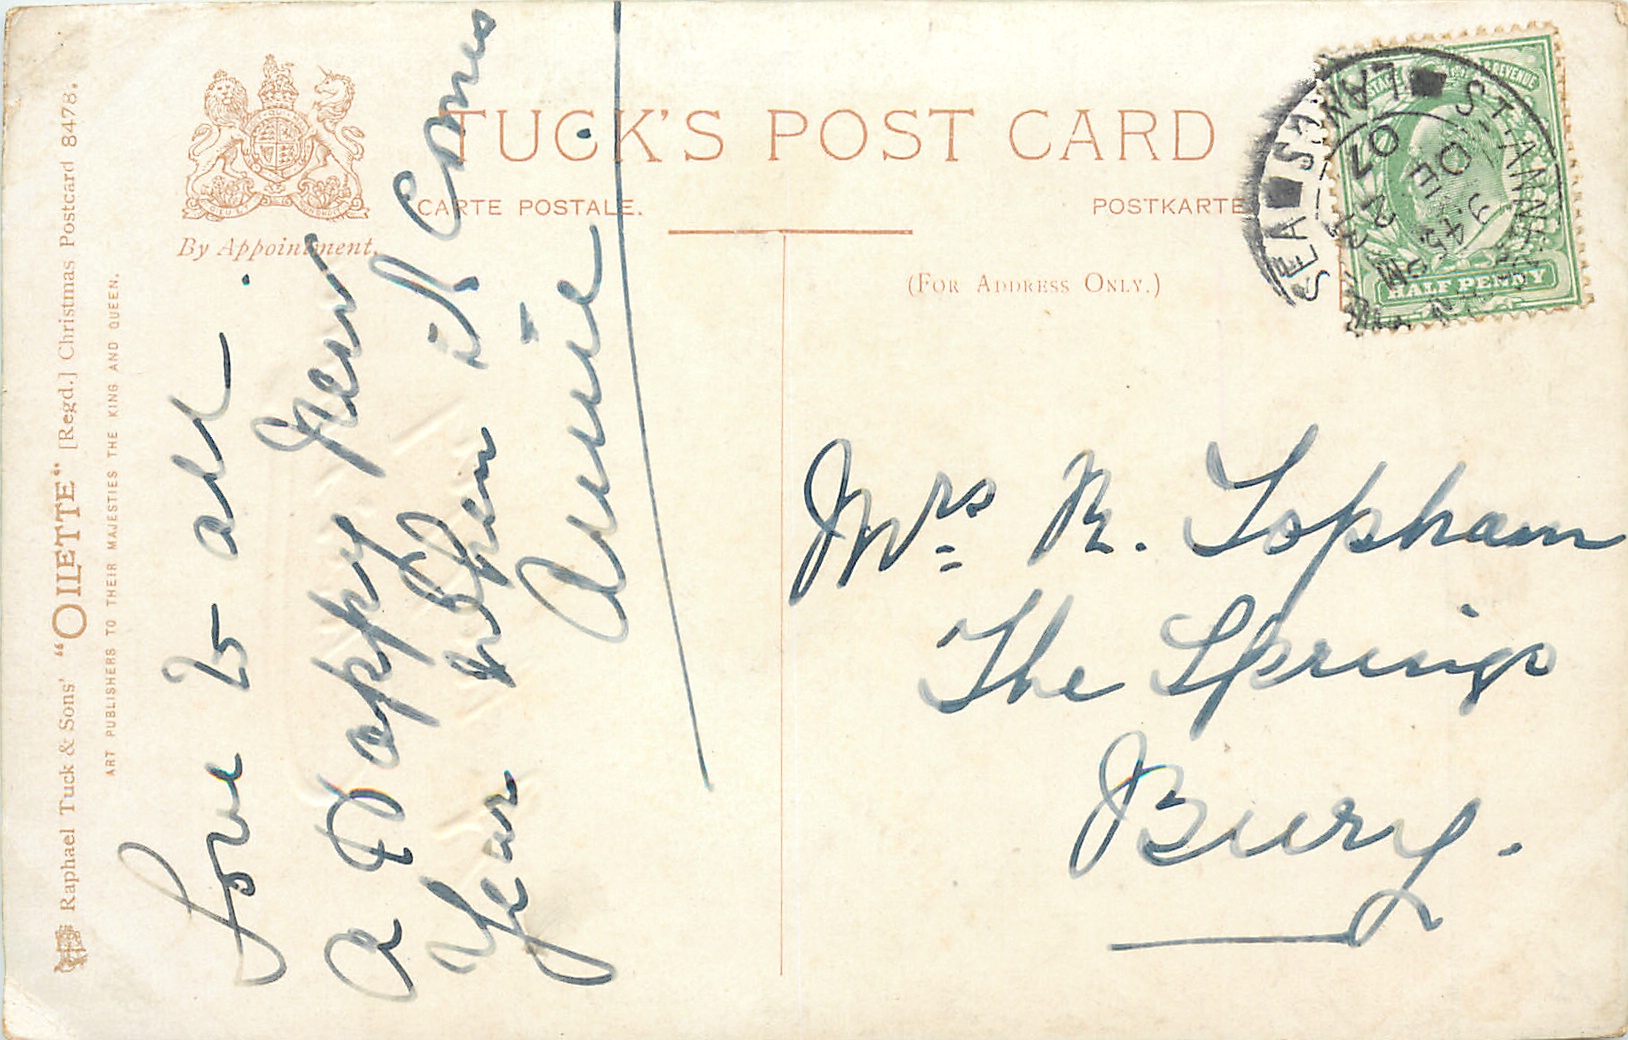 TUCK'S POST CARD
CARTE POSTALE.
POSTKARTE
(FOR ADDRESS ONLY.)
By Appointment.
Raphael Tuck & Sons' "OILETTE" [Regd.] Christmas Postcard 8478.
ART PUBLISHERS TO THEIR MAJESTIES THE KING AND QUEEN.
Love to all.
a Happy New
Year when it comes
Annie
Mrs R. Topham
The Springs
Bury.
POSTAGE & REVENUE
HALF PENNY
ST. ANNES
SEA LANCS
9 45 PM
DE 24
07